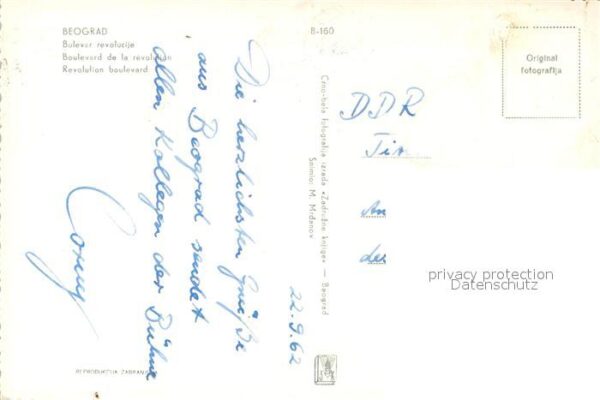 BEOGRAD
Bulevar revolucije
Boulevard de la révolution
Revolution boulevard
B-160
Original
fotografija
Die herzlichsten Grüße
aus Beograd sendet
allen Kollegen der Bühne
22.9.62
Crno-bela fotografija izrada »Zadružne knjige« — Beograd
Snimio: M. Mrđanov
DDR
An
der
privacy protection
Datenschutz
REPRODUKCIJA ZABRANJENA